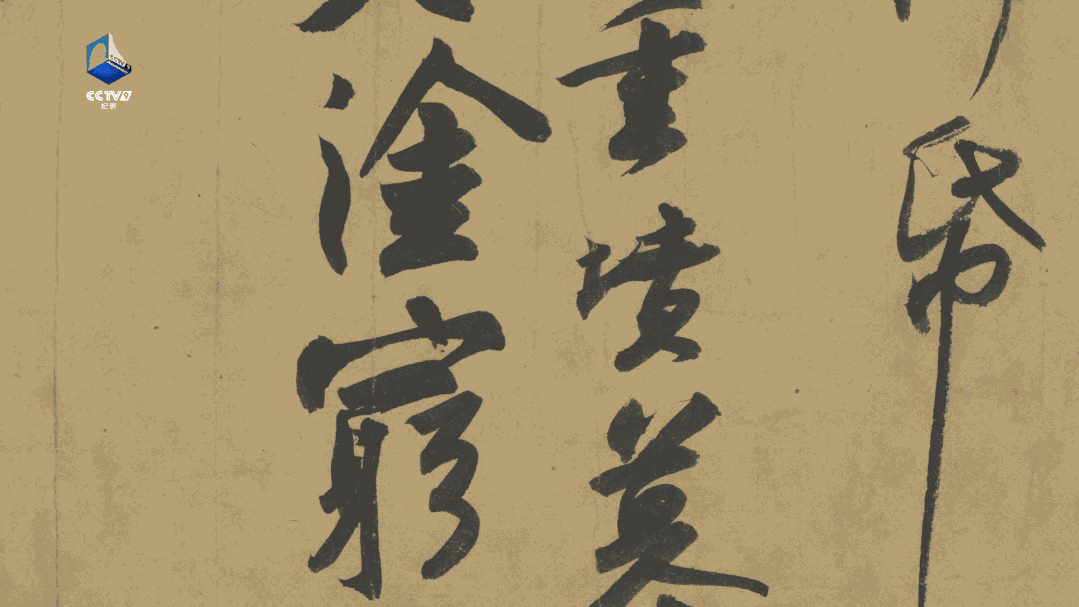 帋
重墳墓
塗窮
CCTV9
纪录